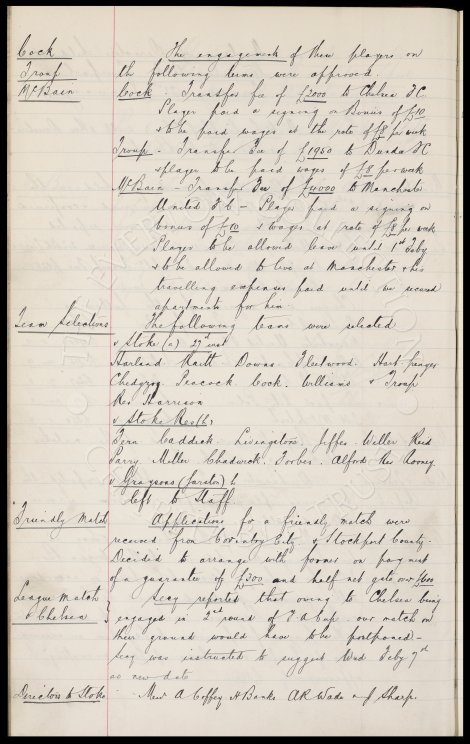 Cock
Troup
McBain
The engagement of these players on
the following terms were approved.
Cock - Transfer fee of £2000 to Chelsea FC
Player paid a signing on Bonus of £10
& to be paid wages at the rate of £8 per week
Troup - Transfer Fee of £1950 to Dundee FC
& player to be paid wages of £8 per week
McBain - Transfer Fee of £4000 to Manchester
United F.C - Player paid a signing on
bonus of £10 & wages at rate of £8 per week
Player to be allowed leave until 1st Feby
& to be allowed to live at Manchester & his
travelling expenses paid until we secured
apartments for him.
Team Selections
The following teams were selected
v Stoke (a) 27th inst
Harland Raitt Downs Fleetwood Hart
Chedgzoy Peacock Cock Williams & Troup
Res Harrison
v Stoke Res (h)
Fern Caddick Livingstone Jeffes Weller Reid
Parry Miller Chadwick Forbes Alford Res Rooney
v Graysons (Garston) h
left to Staff
Friendly Match
Applications for a friendly match were
received from Coventry City & Stockport County.
Decided to arrange with former on payment
of a guarantee of £300 and half net gate over £600
League Match
v Chelsea
Secy reported that owing to Chelsea being
engaged in 2nd round of F A Cup our match on
their ground would have to be postponed -
Secy was instructed to suggest Wed Feby 7th
as new date
Directors to Stoke
Messrs A Coffey A Banks A R Wade & J Sharp.